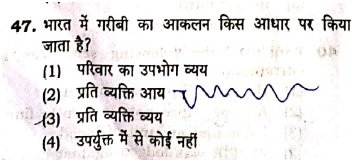 47. भारत में गरीबी का आकलन किस आधार पर किया
जाता है?
(1) परिवार का उपभोग व्यय
(2) प्रति व्यक्ति आय
(3) प्रति व्यक्ति व्यय
(4) उपर्युक्त में से कोई नहीं